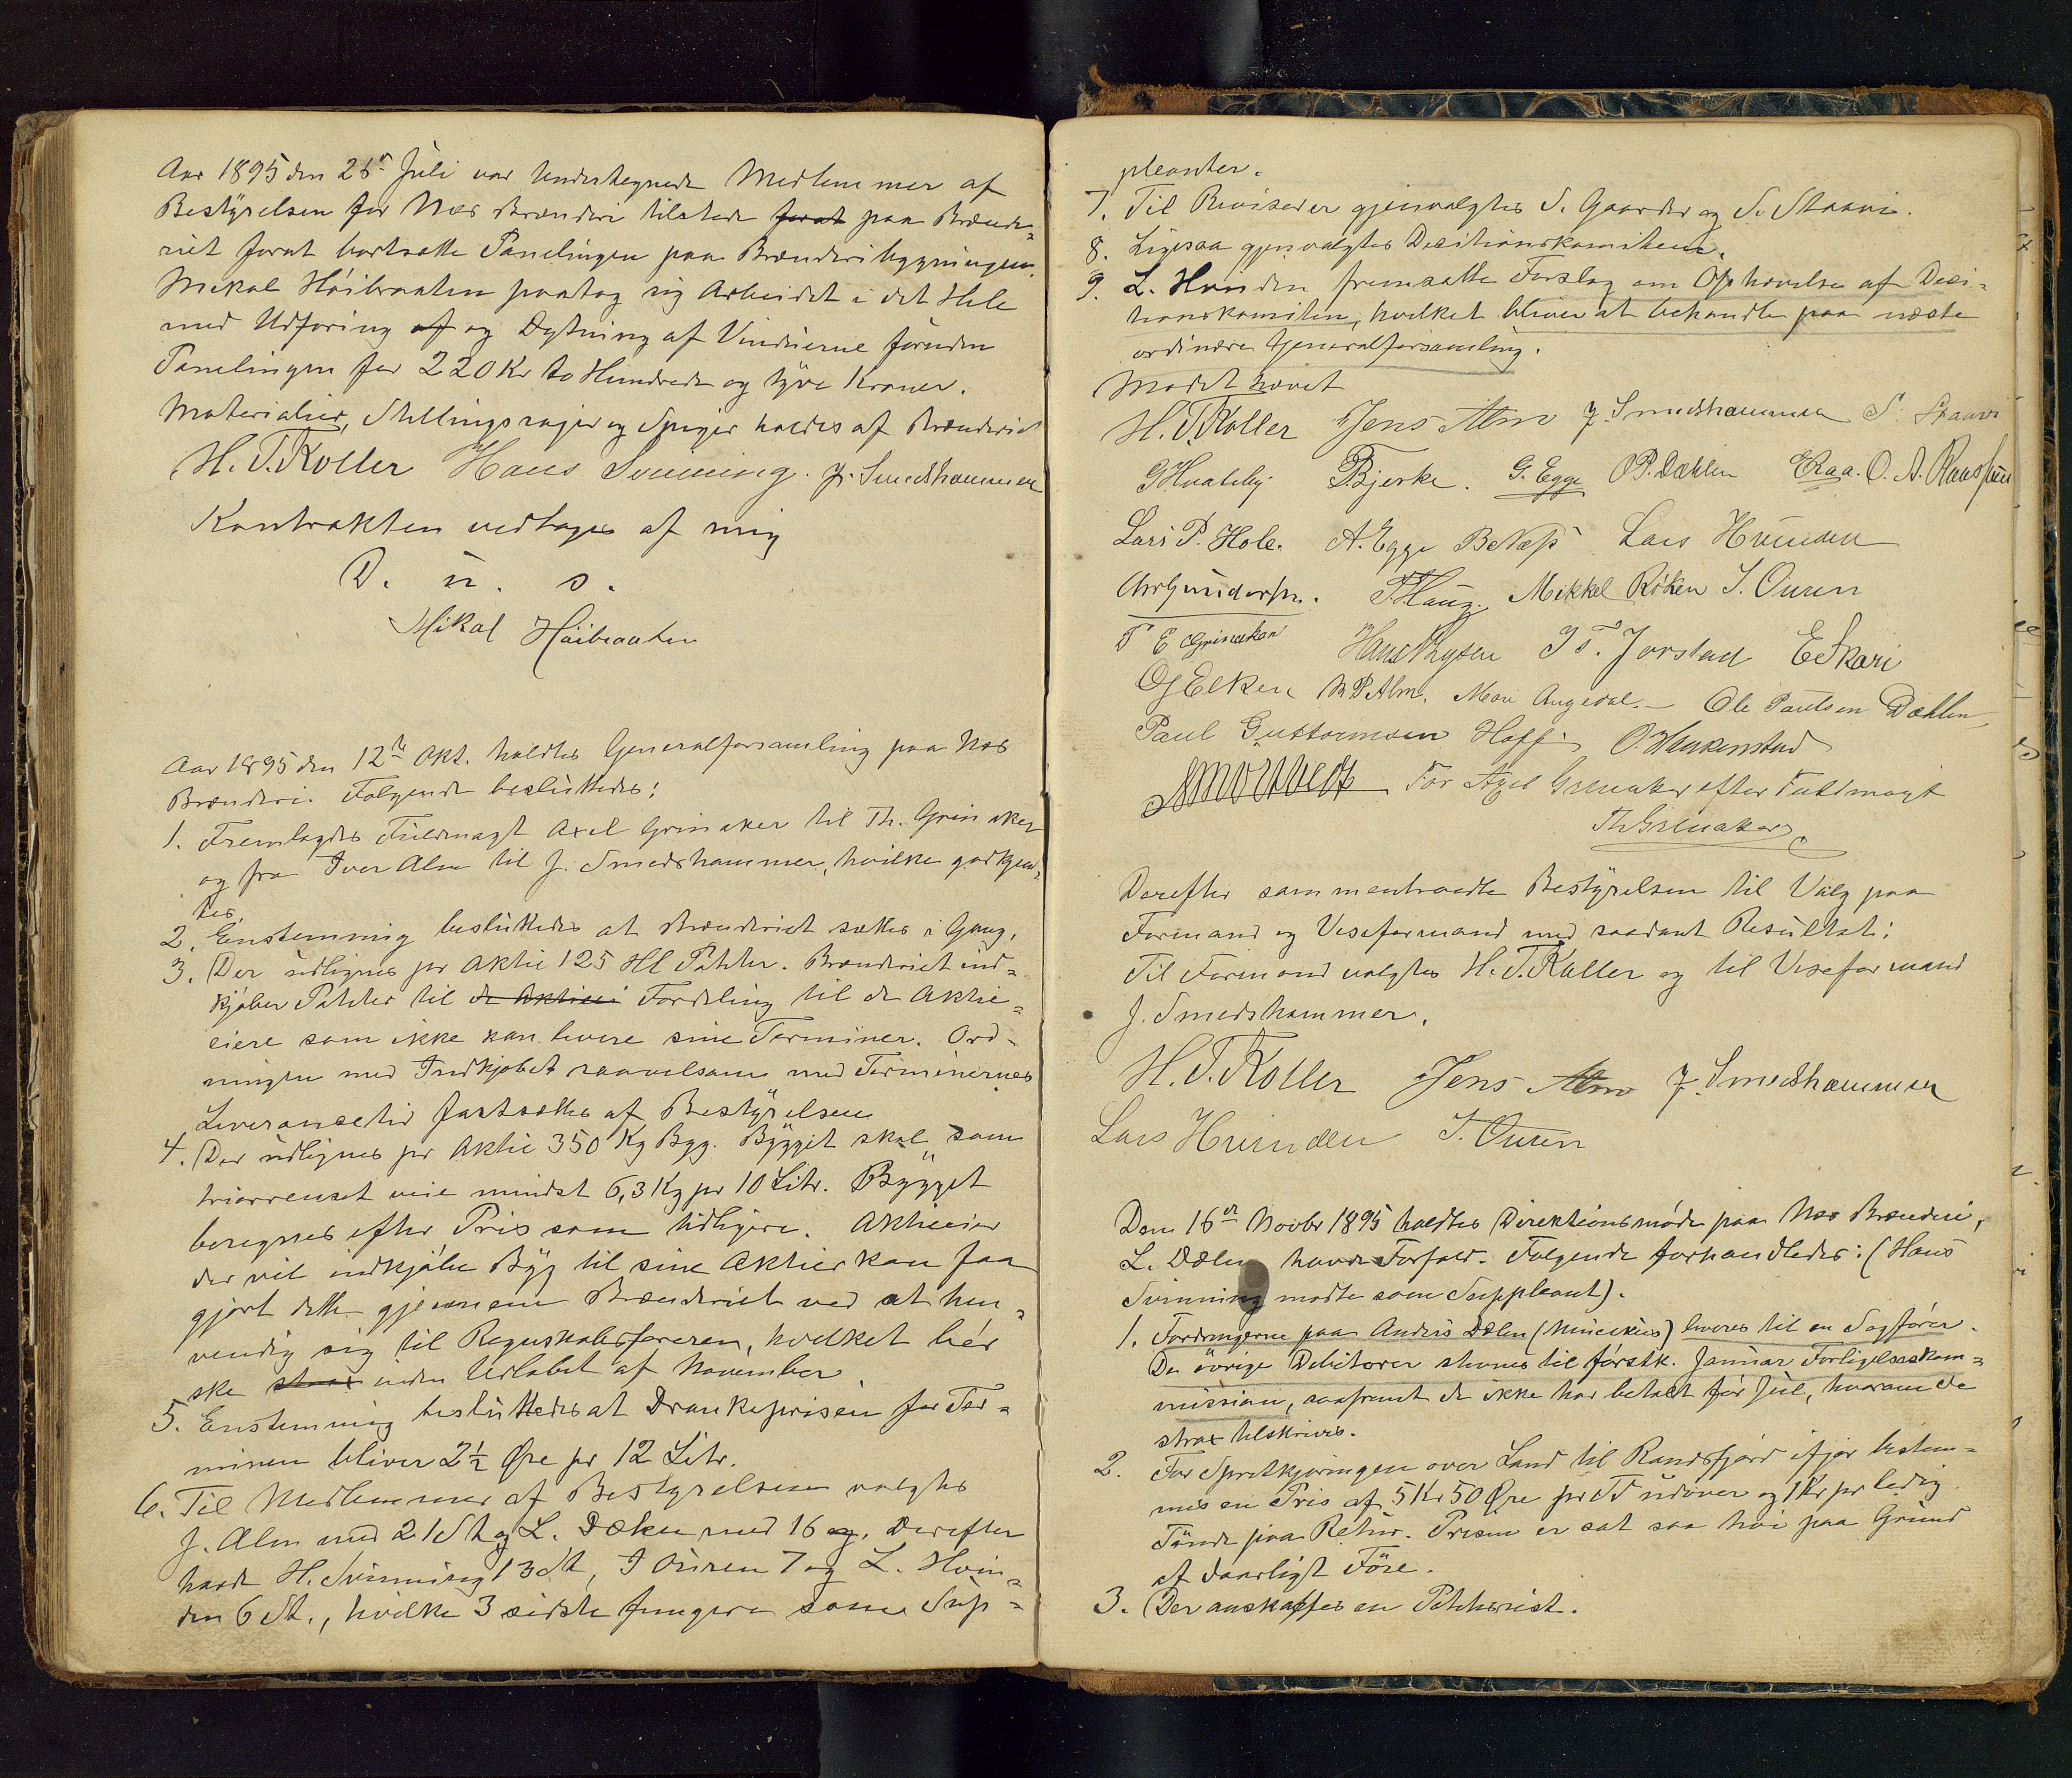 Aar 1895 den 26de Juli var Undertegnede Medlemmer af
Bestyrelsen for Næs Brænderi tilstede forat paa Brænde-
riet forat bortsætte Panelingen paa Brænderibygningen.
Mikal Höibraaten paatog sig Arbeidet i det Hele
med Udforing af og Dytning af Vinduerne foruden
Panelingen for 220 Kr to Hundrede og tyve Kroner.
Materialier, Stillingsrajer og Spiger holdes af Brænderiet
H. T. Koller Hans Svinning. J. Smedshammer
Kontrakten vedtages af mig
D. u. s.
Mikal Höibraaten
Aar 1895 den 12te Okt. holdtes Generalforsamling paa Næs
Brænderi. Følgende besluttedes:
1. Fremlagdes Fuldmagt Axel Grinaker til Th. Grinaker
og fra Iver Alm til J. Smedshammer, hvilke godkjend-
tes.
2. Enstemmig besluttedes at Brænderiet sættes i Gang.
3. Der udlignes pr Aktie 125 Hl Poteter. Brænderiet ind-
kjöber Poteter til de Aktieei Fordeling til de Aktie-
eiere som ikke kan levere sine Terminer. Ord-
ningen med Indkjøbet saavelsom med Terminernes
Leverancetid fastsættes af Bestyrelsen
4. Der udlignes pr Aktie 350 Kg Byg. Bygget skal som
triorrenset veie mindst 6,3 Kg pr 10 Litr. Bygget
beregnes efter Pris som tidligere. Aktieeier
der vil indkjöbe Byg til sine Aktier kan faa
gjort dette gjennem Brænderiet ved at hen-
vendig sig til Regnskabsføreren, hvilket bör
ske strax inden Udløbet af November.
5. Enstemmig besluttedes at Drankeprisen for Ter-
minen bliver 2½ Øre pr 12 Litr.
6. Til Medlemmer af Bestyrelsen valgtes
J. Alm med 21 St og L. Dælen med 16 og. Derefter
havde H. Svinning 13 St, I Ouren 7 og L. Hvin-
den 6 St., hvilke 3 sidste fungerer som Sup-
pleanter.
7. Til Revisorer gjenvalgtes S. Gaarder og S. Staavi.
8. Ligesaa gjenvalgtes Decitionskomiteen.
9. L. Hvinden fremsatte Forslag om Ophævelse af Deci-
tionskomiteen, hvilket bliver at behandle paa næste
ordinære Generalforsamling.
Mødet hævet
H. T. Koller Jens Alm J. Smedshammer S. Staavi
G Hvaleby P Bjerke. G. Egge O P. Dæhlen E Raa. O. A. Raassum
Lars P. Hole. A. Egge B Næss Lars Hvinden
Chr Gundersen. T Haug. Mikkel Röken I. Ouren
T E Grinaker Hans Thysen I T. Jorstad E Skari
O J Elken M P Alm. Ole Paulsen Dæhlen
Paul Guttormsen Hoff O. Haakenstad
A Mortvedt For Axel Grinaker efter Fuldmagt
Th Grinaker
Derefter sammentraadte Bestyrelsen til Valg paa
Formand og Viseformand med saadant Resultat:
Til Formand valgtes H. T. Koller og til Viseformand
J. Smedshammer.
H. T. Koller Jens Alm J. Smedshammer
Lars Hvinden I. Ouren
Den 16de Novbr 1895 holdtes Direktionsmöde paa Næs Brænderi,
L. Dælen havde Forfald. Følgende forhandledes: (Hans
Svinning mødte som Suppleant).
1. Fordringerne paa Anders Dælen leveres til en Sagförer.
De övrige Debitorer stevnes til förstk. Januar Forligelseskom-
mission, saafremt de ikke har betalt för Jul, hvorom de
strax tilskrives.
2. For Spritkjøringen over Land til Randsfjord ifjor bestem-
mes en Pris af 5 Kr 50 Øre pr Fd udover og 1 Kr pr ledig
Tønde paa Retur. Prisen er sat saa høi paa Grund
af daarligt Före.
3. Der anskaffes en Potetesrist.